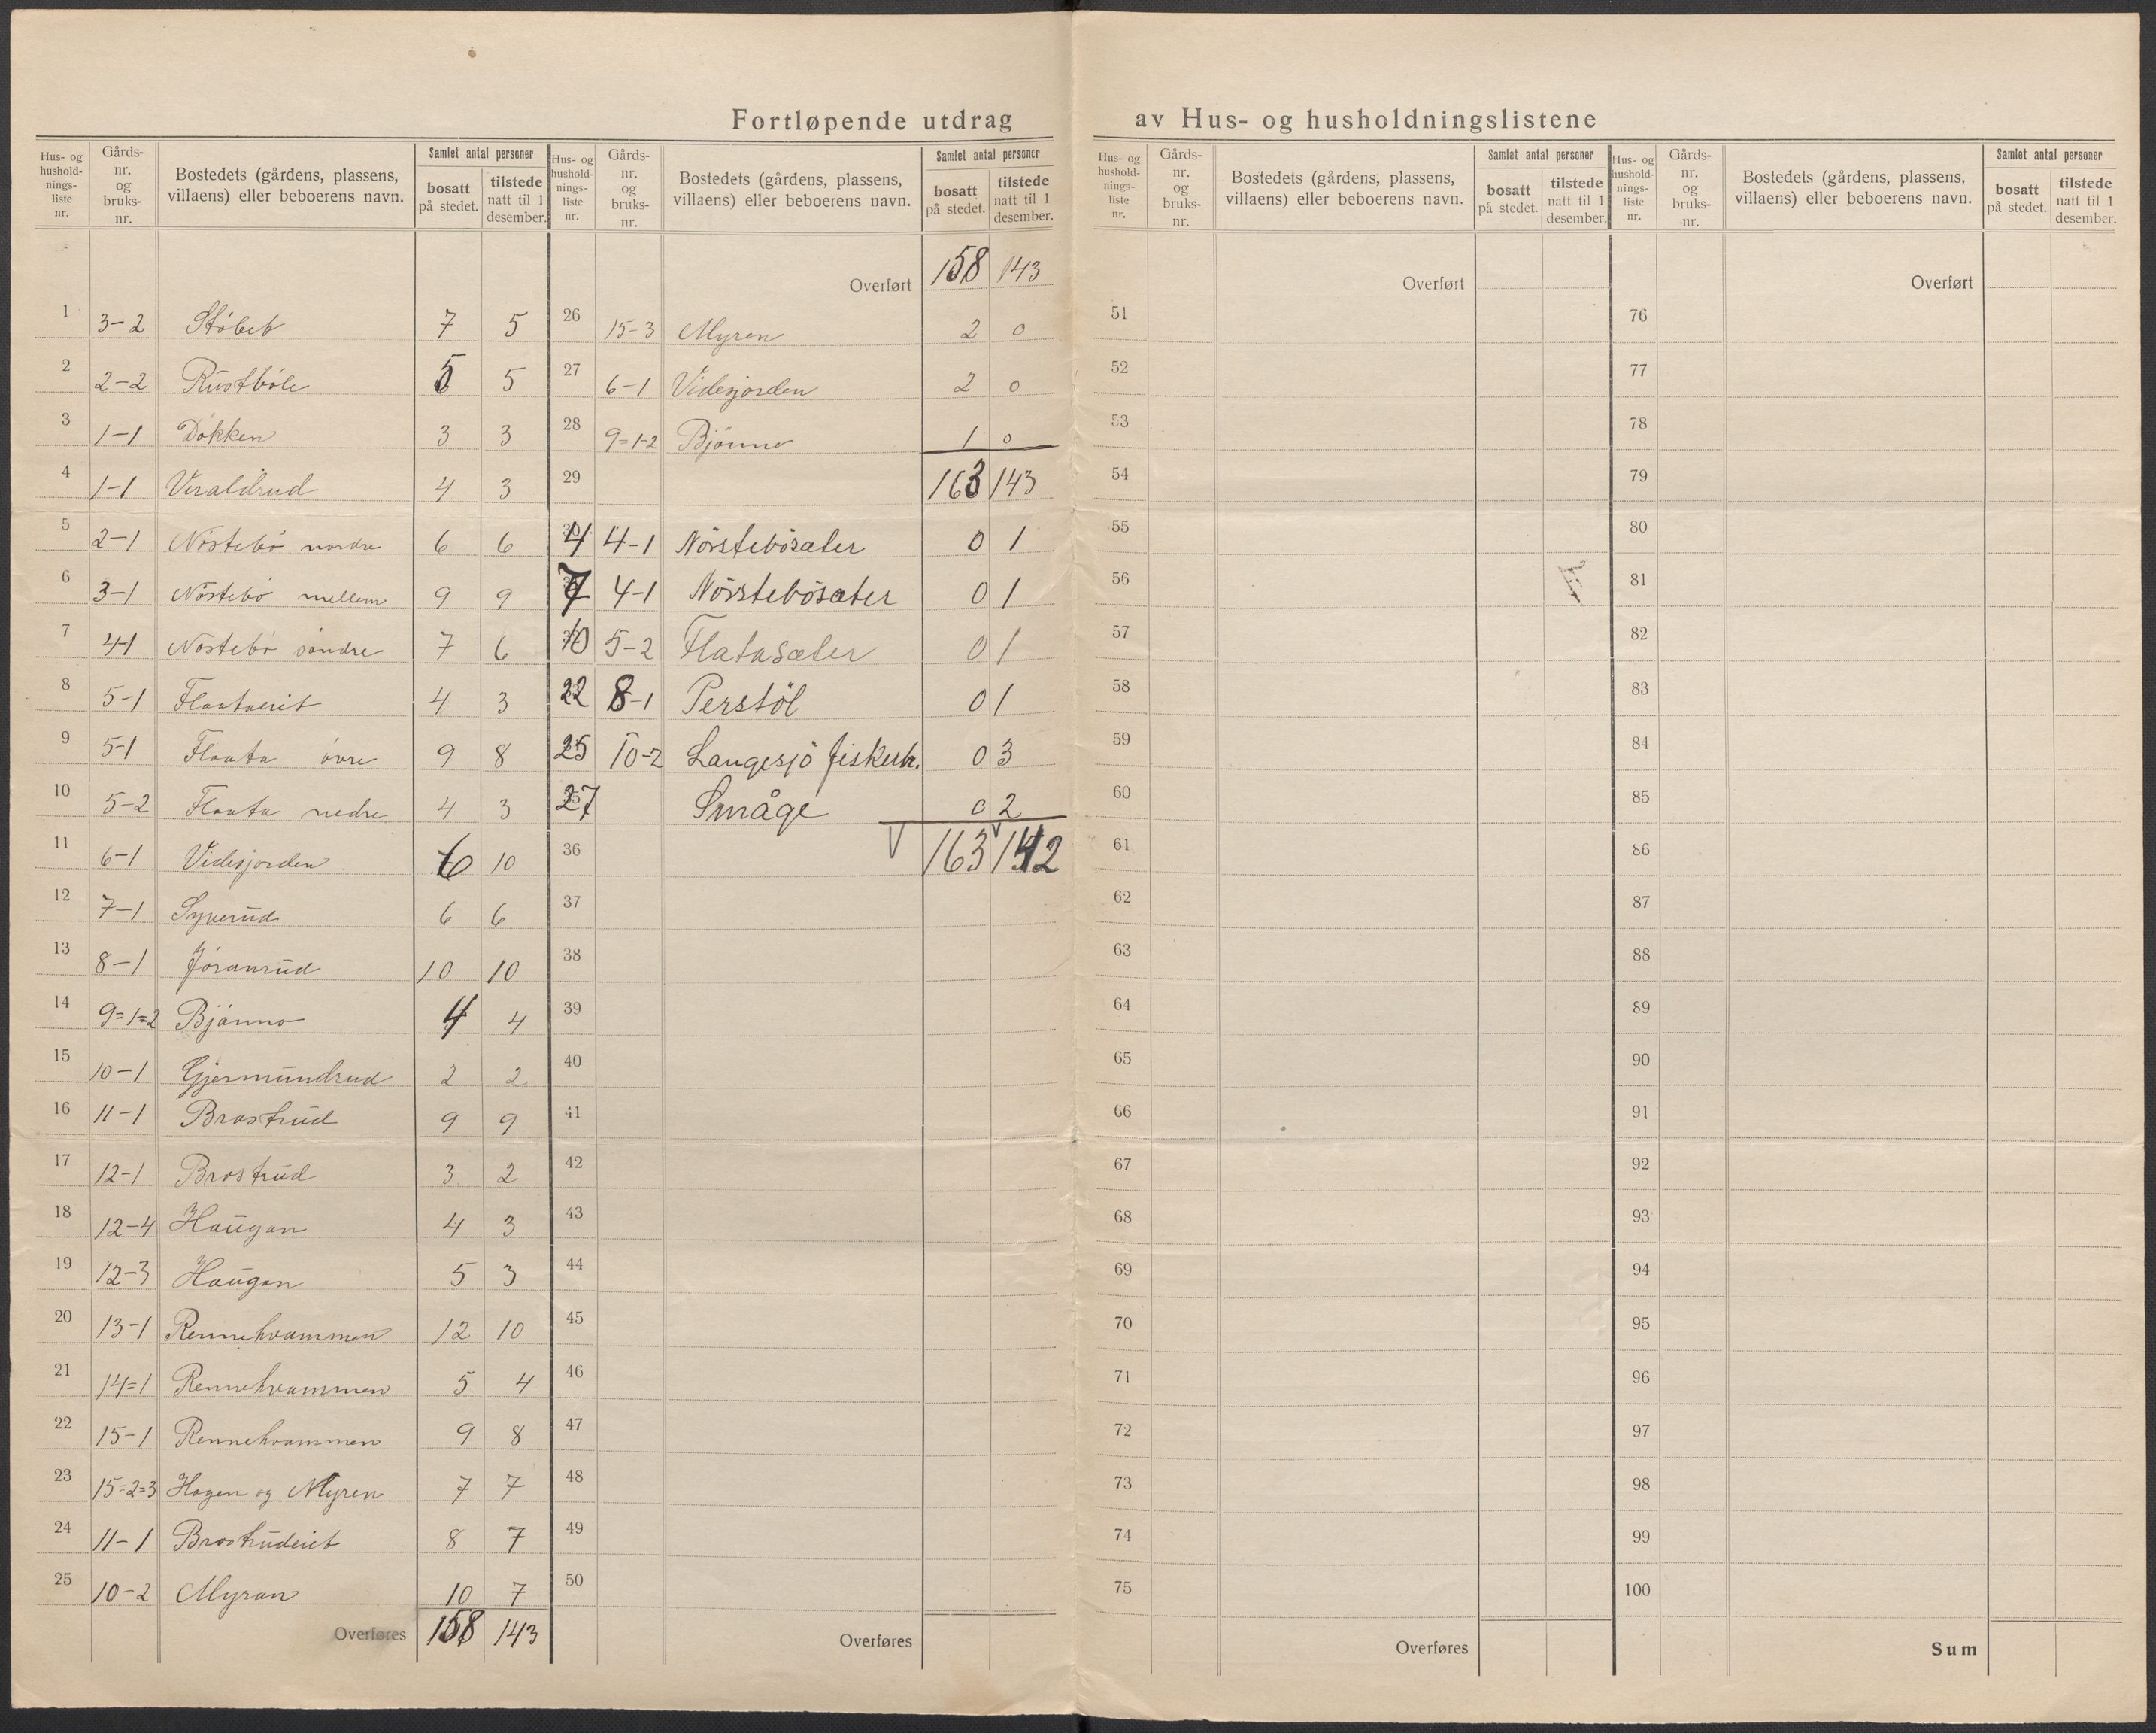 Fortløpende utdrag av Hus- og husholdningslistene
Hus- og hushold- nings- liste nr. | Gårds- nr. og bruks- nr. | Bostedets (gårdens, plassens, villaens) eller beboerens navn. | Samlet antal personer | bosatt på stedet. | tilstede natt til 1 desember.
1 3-2 Stöbet 7 5
2 2-2 Rustböle 5 5
3 1-1 Dokken 3 3
4 1-1 Veraldrud 4 3
5 2-1 Nöstebö nordre 6 6
6 3-1 Nöstebö mellem 9 9
7 4-1 Nöstebö söndre 7 6
8 5-1 Flaataeiet 4 3
9 5-1 Flaata övre 9 8
10 5-2 Flaata nedre 4 3
11 6-1 Videsjorden 6 10
12 7-1 Syverud 6 6
13 8-1 Jöranrud 10 10
14 9=1=2 Bjönno 4 4
15 10-1 Gjermundrud 2 2
16 11-1 Brostrud 9 9
17 12-1 Brostrud 3 2
18 12-4 Haugan 4 3
19 12-3 Haugan 5 3
20 13-1 Rennehvammen 12 10
21 14=1 Rennehvammen 5 4
22 15-1 Rennehvammen 9 8
23 15=2=3 Hagen og Myren 7 7
24 11-1 Brostrudeiet 8 7
25 10-2 Myran 10 7
Overføres 158 143
Hus- og hushold- nings- liste nr. | Gårds- nr. og bruks- nr. | Bostedets (gårdens, plassens, villaens) eller beboerens navn. | Samlet antal personer | bosatt på stedet. | tilstede natt til 1 desember.
Overført 158 143
26 15-3 Myren 2 0
27 6-1 Videsjorden 2 0
28 9=1-2 Bjönno 1 0
29 163 143
4 4-1 Nörstebösæter 0 1
7 4-1 Nörstebösæter 0 1
10 5-2 Flatasæter 0 1
22 8-1 Perstöl 0 1
25 10-2 Langesjö fiskerh. 0 3
27 Småge 0 2
36 163 142
37
38
39
40
41
42
43
44
45
46
47
48
49
50
Overføres
Hus- og hushold- nings- liste nr. | Gårds- nr. og bruks- nr. | Bostedets (gårdens, plassens, villaens) eller beboerens navn. | Samlet antal personer | bosatt på stedet. | tilstede natt til 1 desember.
Overført
51
52
53
54
55
56
57
58
59
60
61
62
63
64
65
66
67
68
69
70
71
72
73
74
75
Overføres
Hus- og hushold- nings- liste nr. | Gårds- nr. og bruks- nr. | Bostedets (gårdens, plassens, villaens) eller beboerens navn. | Samlet antal personer | bosatt på stedet. | tilstede natt til 1 desember.
Overført
76
77
78
79
80
81
82
83
84
85
86
87
88
89
90
91
92
93
94
95
96
97
98
99
100
Sum